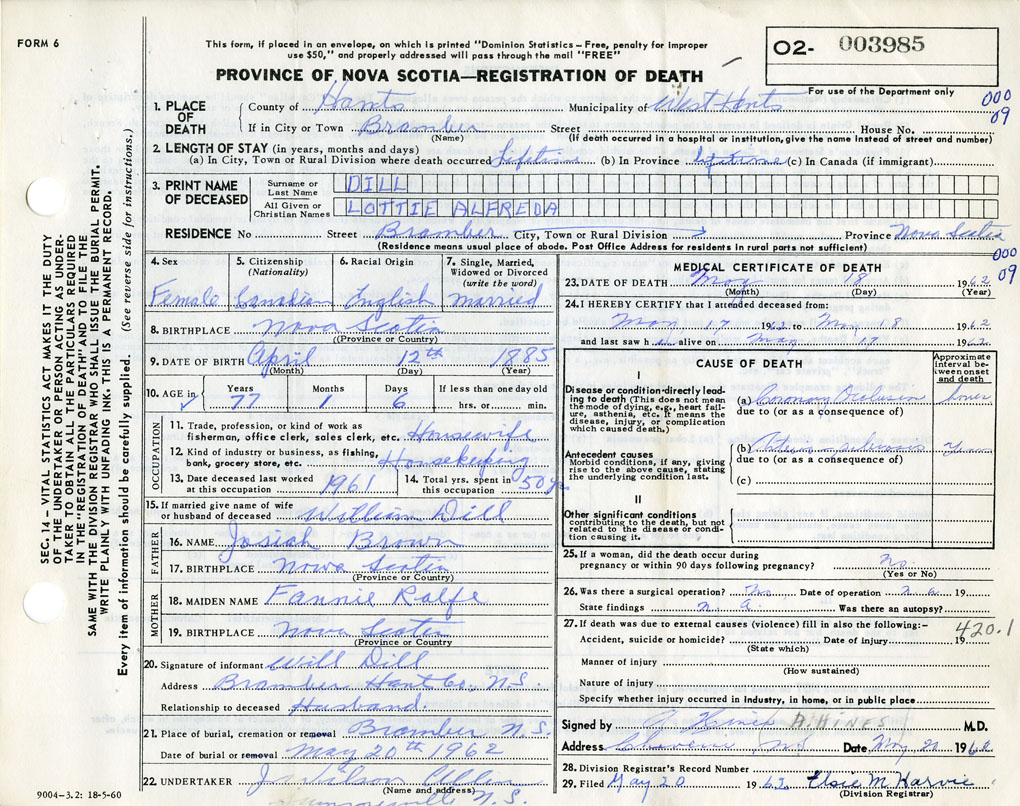 FORM 6
This form, if placed in an envelope, on which is printed "Dominion Statistics – Free, penalty for improper
use $50," and properly addressed will pass through the mail "FREE"
PROVINCE OF NOVA SCOTIA—REGISTRATION OF DEATH
O2- 003985
For use of the Department only
000
09
SEC. 14 – VITAL STATISTICS ACT MAKES IT THE DUTY
OF THE UNDERTAKER OR PERSON ACTING AS UNDER-
TAKER TO OBTAIN ALL THE PARTICULARS REQUIRED
IN THE "REGISTRATION OF DEATH" AND TO FILE THE
SAME WITH THE DIVISION REGISTRAR WHO SHALL ISSUE THE BURIAL PERMIT.
WRITE PLAINLY WITH UNFADING INK. THIS IS A PERMANENT RECORD.
Every item of information should be carefully supplied. (See reverse side for instructions.)
1. PLACE OF DEATH
County of Hants Municipality of West Hants
If in City or Town Bramber Street House No.
(Name) (If death occurred in a hospital or institution, give the name instead of street and number)
2. LENGTH OF STAY (in years, months and days)
(a) In City, Town or Rural Division where death occurred Lifetime (b) In Province Lifetime (c) In Canada (if immigrant)
3. PRINT NAME OF DECEASED
Surname or Last Name DILL
All Given or Christian Names LOTTIE ALFREDA
RESIDENCE No Street Bramber City, Town or Rural Division Province Nova Scotia
(Residence means usual place of abode. Post Office Address for residents in rural parts not sufficient)
000
09
4. Sex Female
5. Citizenship (Nationality) Canadian
6. Racial Origin English
7. Single, Married, Widowed or Divorced (write the word) married
8. BIRTHPLACE Nova Scotia
(Province or Country)
9. DATE OF BIRTH April 12th 1885
(Month) (Day) (Year)
10. AGE in Years Months Days If less than one day old
77 1 6 hrs. or min.
OCCUPATION
11. Trade, profession, or kind of work as
fisherman, office clerk, sales clerk, etc. Housewife
12. Kind of industry or business, as fishing,
bank, grocery store, etc. Housekeeping
13. Date deceased last worked
at this occupation 1961
14. Total yrs. spent in
this occupation 50 yr
15. If married give name of wife
or husband of deceased William Dill
FATHER
16. NAME Josiah Brown
17. BIRTHPLACE Nova Scotia
(Province or Country)
MOTHER
18. MAIDEN NAME Fannie Rolfe
19. BIRTHPLACE Nova Scotia
(Province or Country)
20. Signature of informant Will Dill
Address Bramber Hants Co, N.S.
Relationship to deceased Husband.
21. Place of burial, cremation or removal Bramber N.S.
Date of burial or removal May 20th 1962
22. UNDERTAKER J. Wilson
(Name and address) N.S.
9004-3.2: 18-5-60
MEDICAL CERTIFICATE OF DEATH
23. DATE OF DEATH May 18 1962
(Month) (Day) (Year)
24. I HEREBY CERTIFY that I attended deceased from:
May 17 1962 to May 18 1962
and last saw h er alive on May 17 1962
CAUSE OF DEATH
Approximate interval between onset and death
I
Disease or condition directly lead-
ing to death (This does not mean
the mode of dying, e.g., heart fail-
ure, asthenia, etc. It means the
disease, injury, or complication
which caused death.)
(a) Coronary Occlusion
due to (or as a consequence of)
Antecedent causes
Morbid conditions, if any, giving
rise to the above cause, stating
the underlying condition last.
(b)
due to (or as a consequence of)
(c)
II
Other significant conditions
contributing to the death, but not
related to the disease or condi-
tion causing it.
25. If a woman, did the death occur during
pregnancy or within 90 days following pregnancy? No.
(Yes or No)
26. Was there a surgical operation? No Date of operation n.a. 19
State findings n.a. Was there an autopsy?
27. If death was due to external causes (violence) fill in also the following:-
420.1
Accident, suicide or homicide? Date of injury 19
(State which)
Manner of injury
(How sustained)
Nature of injury
Specify whether injury occurred in industry, in home, or in public place
Signed by A Hines (A. HINES) M.D.
Address Cheverie, NS Date May 21 1962
28. Division Registrar's Record Number
29. Filed May 20 1962 Elsie M Harvie
(Division Registrar)